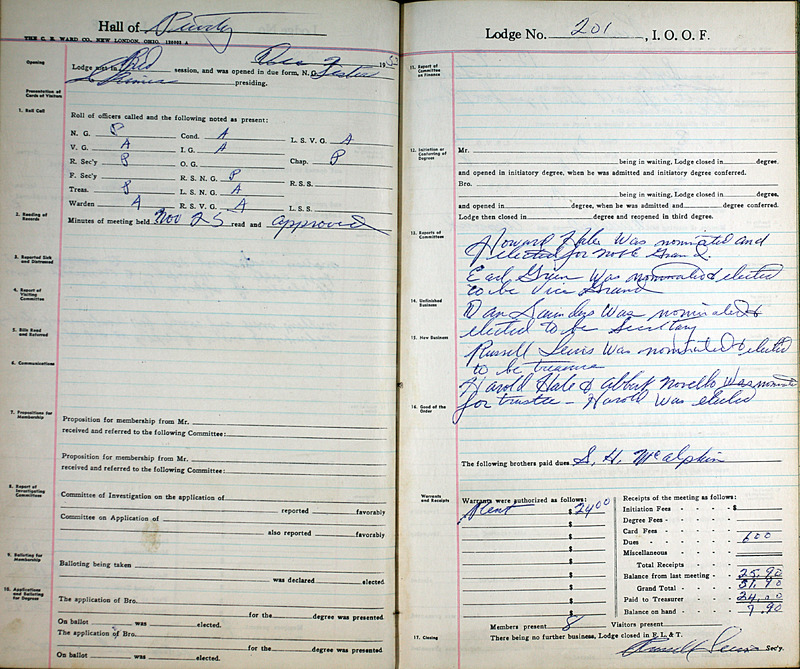 Hall of Purdy
THE C. E. WARD CO., NEW LONDON, OHIO. 128901 A
Opening
Lodge met in session, and was opened in due form, N. G. Lester
presiding.
Presentation of Cards of Visitors
1. Roll Call
Roll of officers called and the following noted as present:
N. G. P Cond. A L. S. V. G. A
V. G. A I. G. A
R. Sec'y P O. G. Chap. P
F. Sec'y R. S. N. G. P
Treas. P L. S. N. G. A R. S. S.
Warden A R. S. V. G. A L. S. S.
2. Reading of Records
Minutes of meeting held Nov 25 read and approved
3. Reported Sick and Distressed
4. Report of Visiting Committee
5. Bills Read and Referred
6. Communications
7. Propositions for Membership
Proposition for membership from Mr.
received and referred to the following Committee:
Proposition for membership from Mr.
received and referred to the following Committee:
8. Report of Investigating Committee
Committee of Investigation on the application of
reported favorably
Committee on Application of
also reported favorably
9. Balloting for Membership
Balloting being taken
was declared elected.
10. Applications and Balloting for Degrees
The application of Bro.
for the degree was presented
On ballot was elected.
The application of Bro.
for the degree was presented
On ballot was elected.
Lodge No. 201, I. O. O. F.
11. Report of Committee on Finance
12. Initiation or Conferring of Degrees
Mr.
being in waiting, Lodge closed in degree,
and opened in initiatory degree, when he was admitted and initiatory degree conferred.
Bro.
being in waiting, Lodge closed in degree,
and opened in degree, when he was admitted and degree conferred.
Lodge then closed in degree and reopened in third degree.
13. Reports of Committees
Howard Hale Was nominated and
elected for noble Grand.
Earl Green Was nominated & elected
to be Vice Grand
14. Unfinished Business
Dan Saunders Was nominated &
elected to be Secretary
15. New Business
Russell Lewis Was nominated & elected
to be treasure
Harold Hale & Abbott Novello was nominated
16. Good of the Order
for trustee - Harold Was elected
The following brothers paid dues S. H. McAlpin
Warrants and Receipts
Warrants were authorized as follows:
Rent $ 24 00
Receipts of the meeting as follows:
Initiation Fees $
Degree Fees
Card Fees
Dues 6 00
Miscellaneous
Total Receipts
Balance from last meeting 25.90
Grand Total 31.90
Paid to Treasurer 24.00
Balance on hand 7.90
Members present 8 Visitors present
17. Closing
There being no further business, Lodge closed in F. L. & T.
Russell Lewis Sec'y.